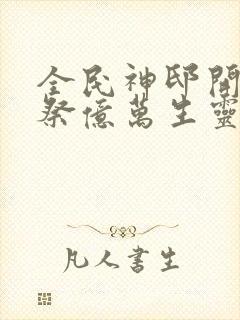 全民神邸開
祭億萬生靈
凡人書生